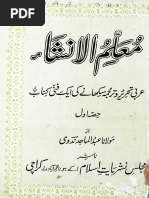 معلم الانشاء
عربی تحریر و ترجمہ سکھانے کی ایک فنی کتاب
حصہ اول
از
مولانا عبدالماجد ندوی
ناشر
مجلس نشریات اسلام
کراچی